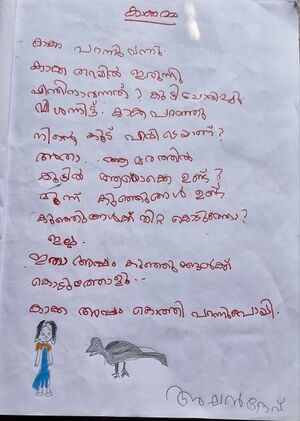 കാക്കമ്മ
കാക്ക പറന്നുവന്നു.
കാക്ക തറയിൽ ഇരുന്നു
എന്തിനാവന്നത്? കുട്ടി ചോദിച്ചു
വിശന്നിട്ട്. കാക്ക പറഞ്ഞു
നിന്റെ കൂട് എവിടെയാണ്?
അതാ... ആ മരത്തിൽ
കൂട്ടിൽ ആരൊക്കെ ഉണ്ട്?
മൂന്ന് കുഞ്ഞുങ്ങൾ ഉണ്ട്
കുഞ്ഞുങ്ങൾക്ക് തീറ്റ കൊടുത്തോ?
ഇല്ല.
ഇതാ അപ്പം കുഞ്ഞുങ്ങൾക്ക്
കൊടുത്തോളൂ..
കാക്ക അപ്പം കൊത്തി പറന്നുപോയി.